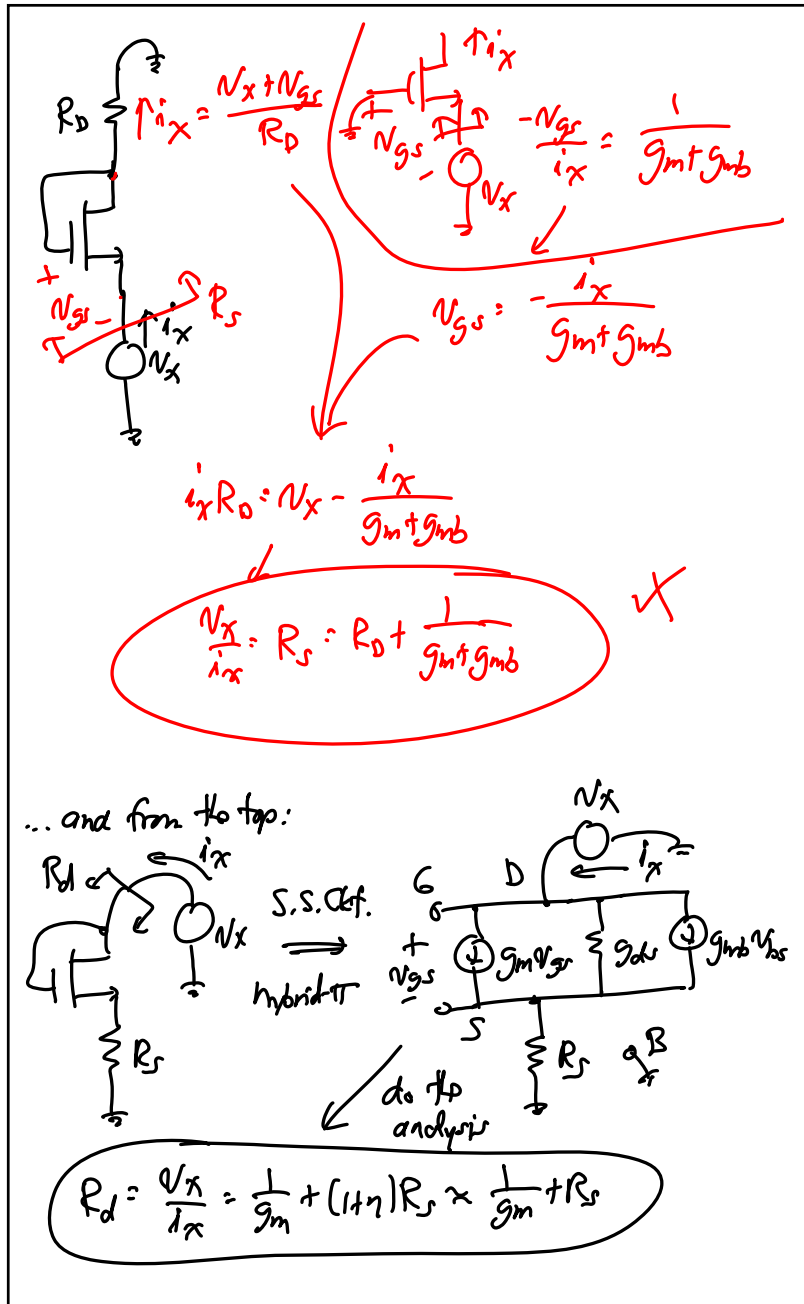 R_D ↑i_x = (v_x + v_gs) / R_D
↑i_x
+ v_gs - v_x
-v_gs / i_x = 1 / (g_m + g_mb)
+ v_gs - R_s
↑i_x
v_x
v_gs = - i_x / (g_m + g_mb)
i_x R_D = v_x - i_x / (g_m + g_mb)
v_x / i_x = R_s = R_D + 1 / (g_m + g_mb)
... and from the top:
R_d i_x
v_x
R_s
S.S. Ckt.
⇒
hybrid-π
v_x
G D i_x
+ v_gs - g_m v_gs g_ds g_mb v_bs
S R_s B
do the
analysis
R_d = v_x / i_x = 1 / g_m + (1+η)R_s ≈ 1 / g_m + R_s